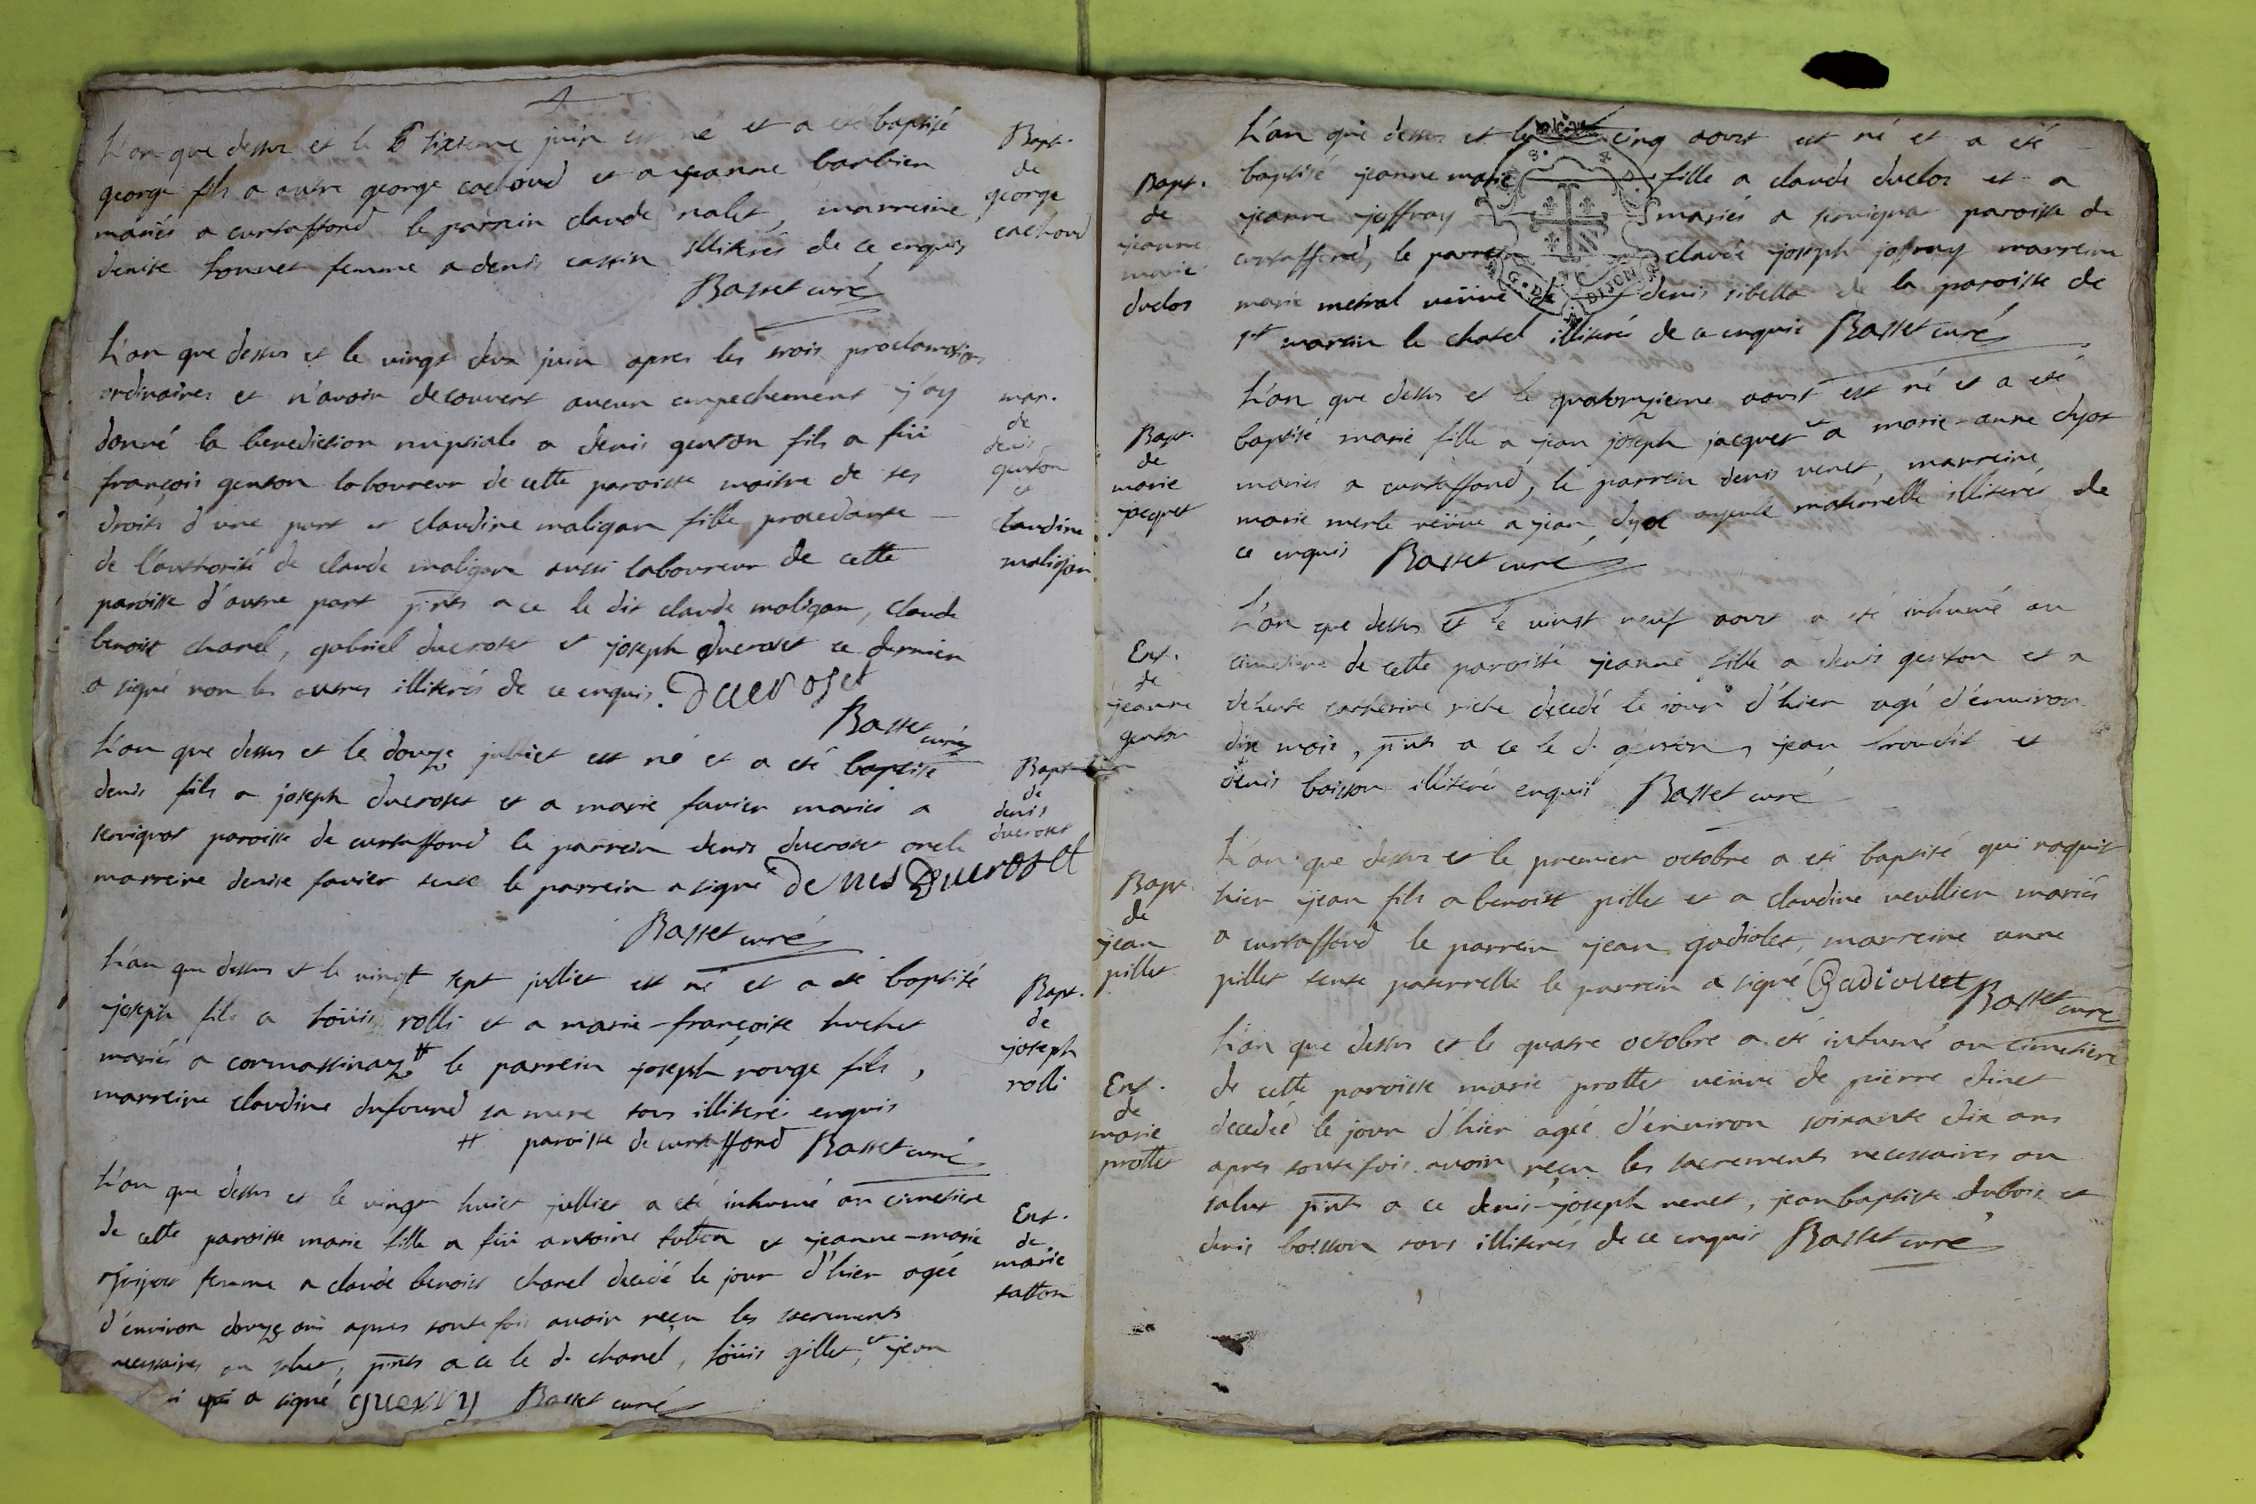 L'an que dessus et le sixieme juin est né et a eté baptisé
george fils a autre george cachoud et a jeanne barbien
mariés a curtaffond le parrain claude nalet, marreine
denise femme a denis cassin illiterés de ce enquis
Basset curé
Bapt.
de
george
cachoud
L'an que dessus et le vingt deux juin apres les trois proclamations
ordinaires et n'avoir decouvert aucun empechement j'ay
donné la benediction nuptiale a denis genton fils a feü
françois genton laboureur de cette paroisse maitre de ses
droits d'une part et claudine maligan fille procedante
de l'authorité de claude maligan aussi laboureur de cette
paroisse d'autre part pnts a ce le dit claude maligan, claude
benoit chanel, gabriel ducroset et joseph ducroset ce dernier
a signé non les autres illiterés de ce enquis. Ducroset
Basset curé
mar.
de
denis
genton
et
claudine
maligan
L'an que dessus et le douze julliet est né et a eté baptisé
denis fils a joseph ducroset et a marie favier mariés a
servignat paroisse de curtaffond le parrein denis ducroset oncle
marreine denise favier tente le parrein a signé denis Ducroset
Basset curé
Bapt
de
denis
ducroset
L'an que dessus et le vingt sept julliet est né et a eté baptisé
joseph fils a loüis rolli et a marie-françoise huchet
mariés a cormassinaz # le parrein joseph rouge fils,
marreine claudine dufound sa mere tous illiterés enquis
# paroisse de curtaffond Basset curé
Bapt.
de
joseph
rolli
L'an que dessus et le vingt huict julliet a eté inhumé au cimetiere
de cette paroisse marie fille a feü antoine tatton et jeanne-marie
femme a claude benoist chanel decedé le jour d'hier agée
d'environ douze ans apres toutefois avoir reçu les sacrements
necessaires au salut, pnts a ce le d. chanel, loüis gillet, et jean
qui a signé guerry Basset curé
Ent.
de
marie
tatton
L'an que dessus et le cinq aoust est né et a eté
baptisé jeanne marie fille a claude duclos et a
jeanne joffray mariés a servignat paroisse de
curtaffond, le parrein claude joseph jofray marreine
marie metral veüve de denis sibella de la paroisse de
st martin le chatel illiterés de ce enquis Basset curé
Bapt.
de
jeanne
marie
duclos
L'an que dessus et le quatorzieme aoust est né et a eté
baptisé marie fille a jean joseph jacquet et a marie-anne dyot
mariés a curtaffond, le parrein denis venet, marreine
marie merle veüve a jean dyot ayeule maternelle illiterés de
ce enquis Basset curé
Bapt.
de
marie
jacquet
L'an que dessus et le vingt neuf aoust a eté inhumé au
cimetiere de cette paroisse jeanne fille a denis genton et a
defunte catherine riche decedé le jour d'hier agé d'environ
dix mois, pnts a ce le d. genton, jean et
denis boisson illiterés enquis Basset curé
Ent.
de
jeanne
genton
L'an que dessus et le premier octobre a eté baptisé qui naquit
hier jean fils a benoist pillet et a claudine veullien mariés
a curtaffond le parrein jean gadiolet, marreine anne
pillet tente paternelle le parrein a signé Gadiolet Basset curé
Bapt.
de
jean
pillet
L'an que dessus et le quatre octobre a eté inhumé au cimetiere
de cette paroisse marie prottet veüve de pierre dinet
decedée le jour d'hier agée d'environ soixante dix ans
apres toutefois avoir reçu les sacrements necessaires au
salut pnts a ce denis-joseph venet, jean baptiste dubois et
denis boisson tous illiterés de ce enquis Basset curé
Ent.
de
marie
prottet
G. D. DIJON